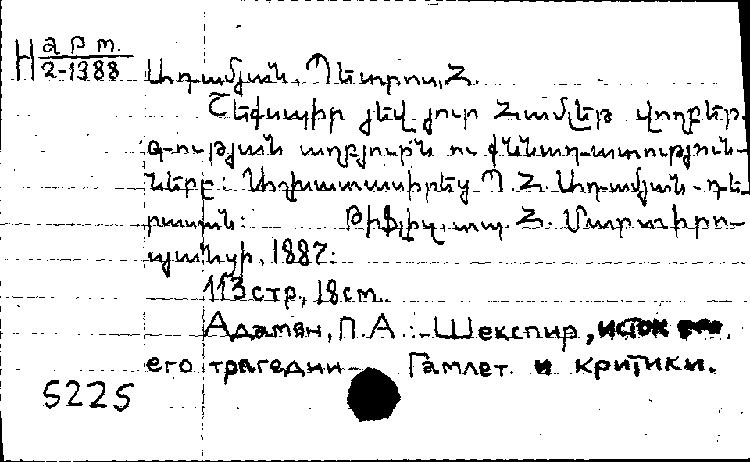 Н арт.
2-1388
Ադամյան, Պետրոս, Հ.
Շեքսպիր յեվ յուր Համլեթ վողբեր-
գության աղբյուրն ու քննադատություն-
ները: Աշխատասիրեց Պ. Հ. Ադամյան - դե-
րասան: Թիֆլիզ, տպ. Հ. Մարտիրո-
սյանցի, 1887:
113 стр, 18 см.
Адамян, П. А. Шекспир, исток
его трагедии Гамлет и критики.
5225